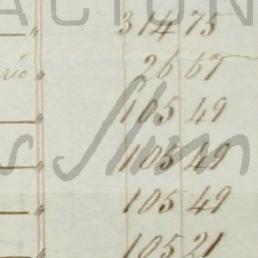 ACION
— " 314 75
rio " 26 67
— " 105 49
— " 105 49
— " 105 49
— " 105 21